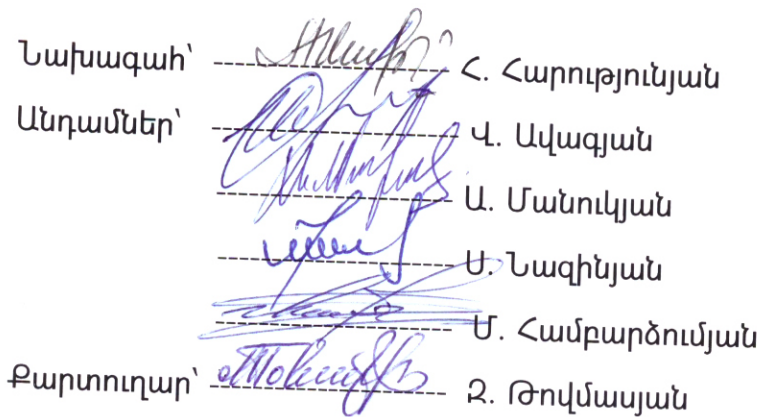 Նախագահ՝ Հ. Հարությունյան
Անդամներ՝ Վ. Ավագյան
Ա. Մանուկյան
Ս. Նազինյան
Մ. Համբարձումյան
Քարտուղար՝ Զ. Թովմասյան